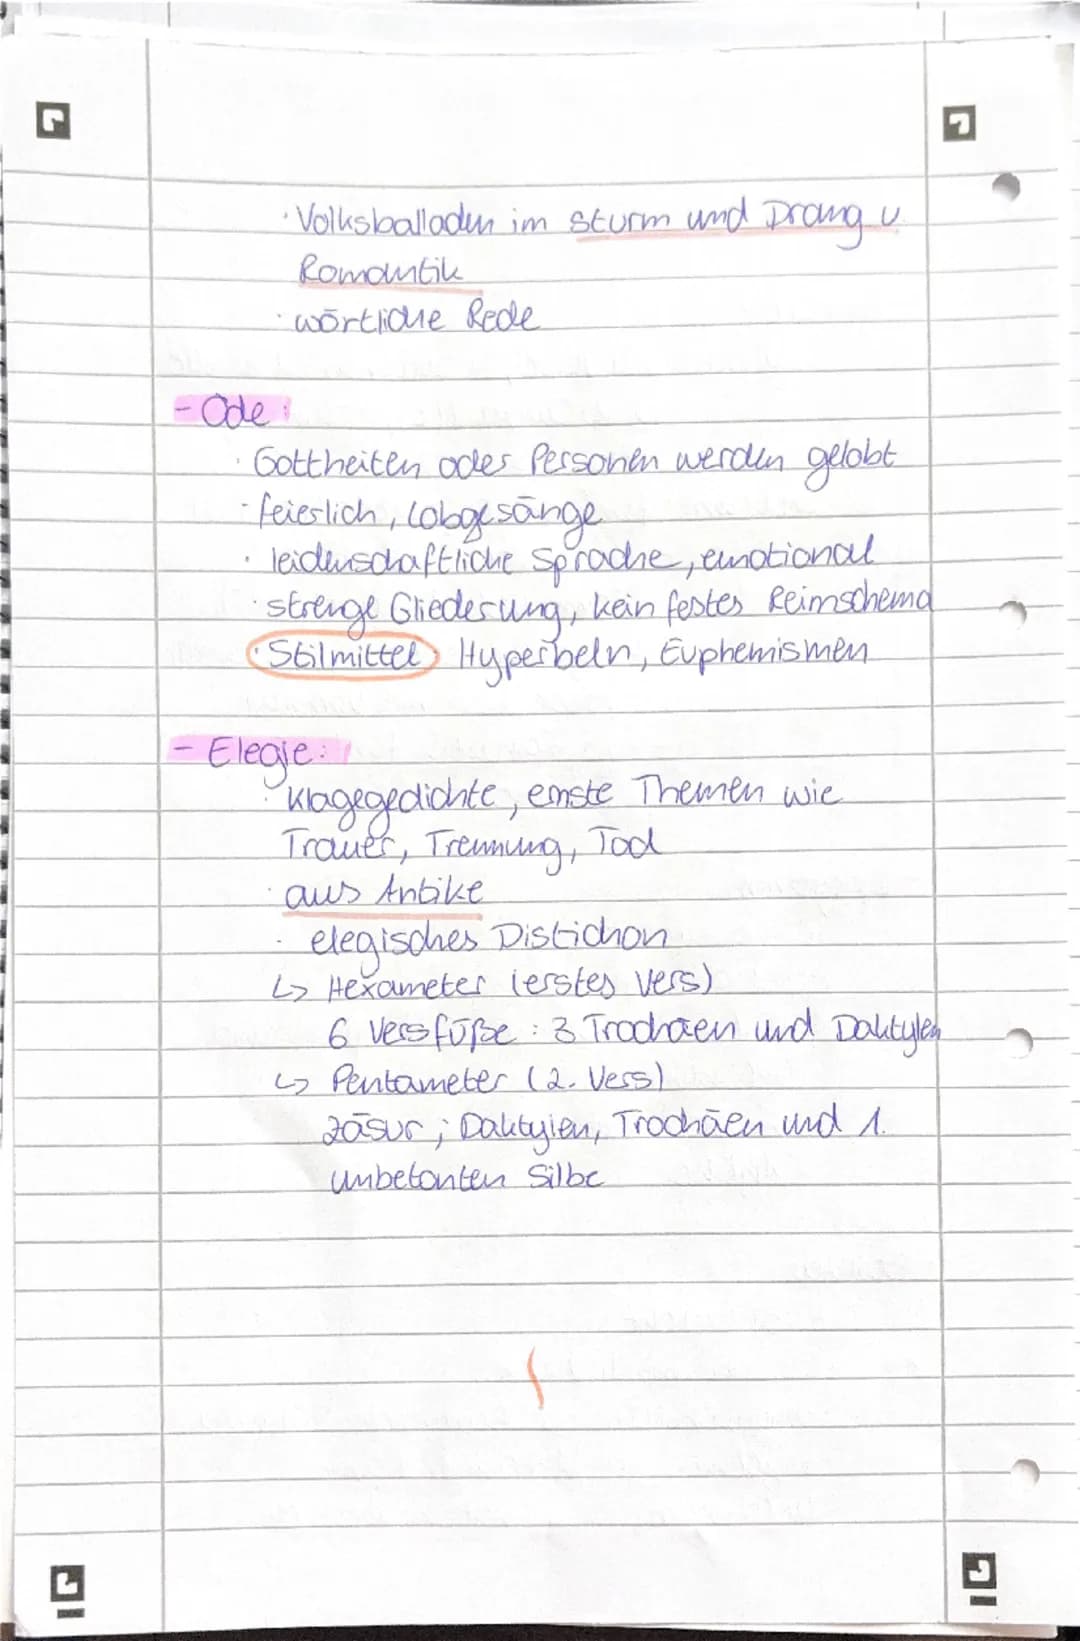 · Volksballaden im Sturm und Drang u.
Romantik
· wörtliche Rede
- Ode:
· Gottheiten oder Personen werden gelobt
· feierlich, Lobgesänge
· leidenschaftliche Sprache, emotional
· strenge Gliederung, kein festes Reimschema
· Stilmittel Hyperbeln, Euphemismen
- Elegie:
· Klagegedichte, ernste Themen wie
Trauer, Trennung, Tod
· aus Antike
· elegisches Distichon
↳ Hexameter (erstes Vers)
6 Versfüße : 3 Trochäen und Daktylen
↳ Pentameter (2. Vers)
Zäsur ; Daktylen, Trochäen und 1.
unbetonten Silbe